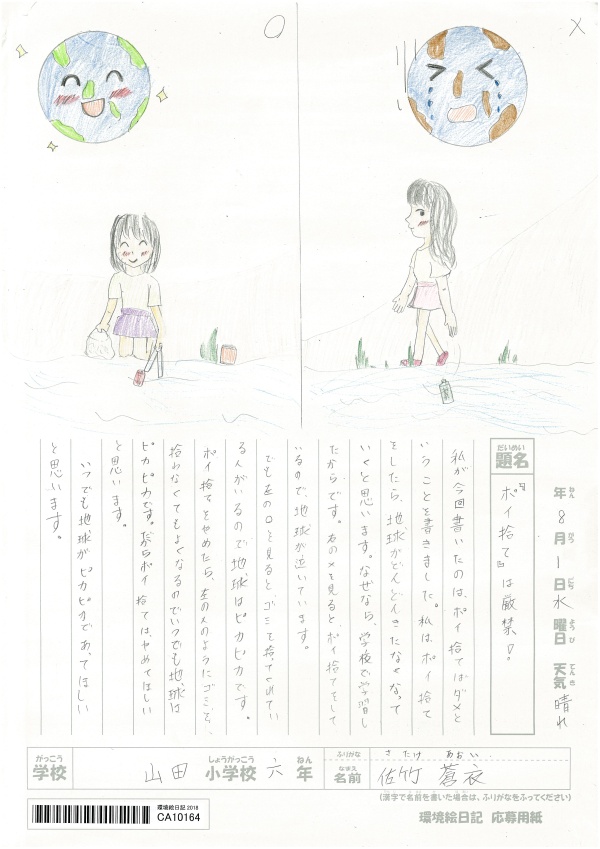 ○
×
年 8月1日 水曜日 天気 晴れ
ねん がつ にち ようび てんき
だいめい
題名
『ポイ捨て』は厳禁!。
私が今回書いたのは、ポイ捨てはダメと
いうことを書きました。私は、ポイ捨て
をしたら、地球がどんどんきたなくなって
いくと思います。なぜなら、学校で学習し
たからです。右の×を見ると、ポイ捨てをして
いるので、地球が泣いています。
でも左の○を見ると、ゴミを捨ってくれてい
る人がいるので地球はピカピカです。
ポイ捨てをやめたら、左の人のようにゴミを、
拾わなくてもよくなるのでいつでも地球は
ピカピカです。だからポイ捨ては、やめてほしい
と思います。
いつでも地球がピカピカであってほしい
と思います。
がっこう
学校
山田
しょうがっこう
小学校
六
ねん
年
ふりがな
さたけ あおい
なまえ
名前
佐竹 蒼衣
(漢字で名前を書いた場合は、ふりがなをふってください)
環境絵日記 2018
CA10164
環境絵日記 応募用紙